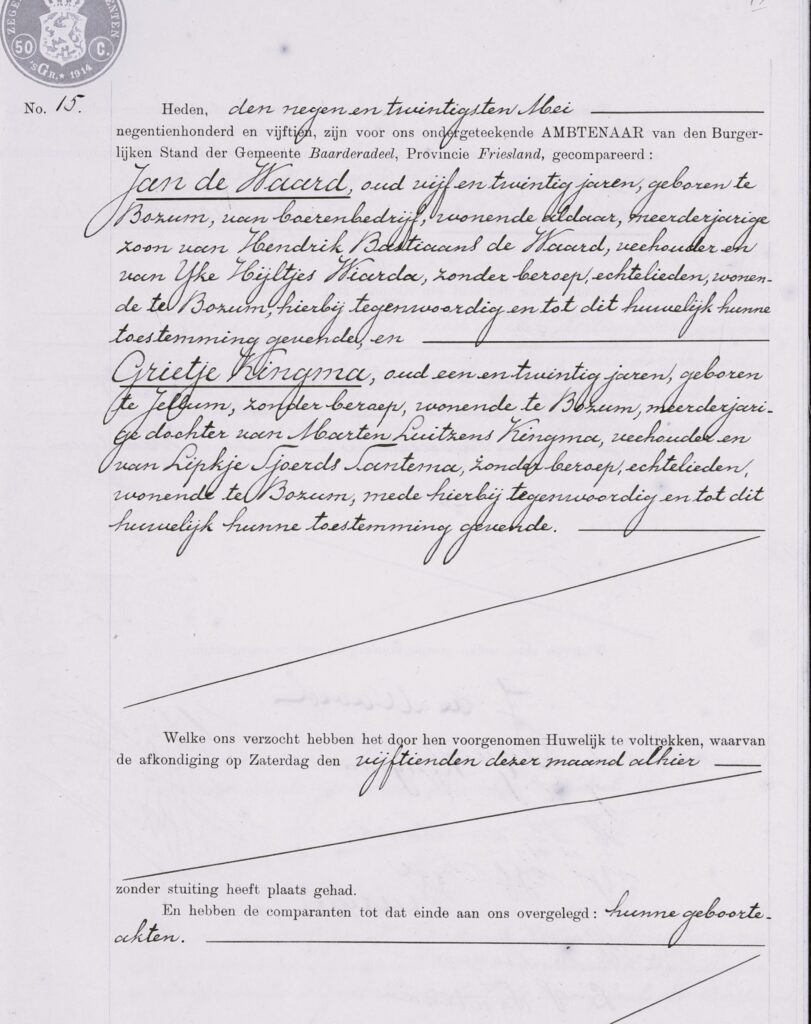 ZEGE
ENTEN
50 C.
'sGR.* 1914
No. 15.
Heden, den negen en twintigsten Mei
negentienhonderd en vijftien, zijn voor ons ondergeteekende AMBTENAAR van den Burger-
lijken Stand der Gemeente Baarderadeel, Provincie Friesland, gecompareerd:
Jan de Waard, oud vijf en twintig jaren, geboren te
Bozum, van boerenbedrijf, wonende aldaar, meerderjarige
zoon van Hendrik Bastiaans de Waard, veehouder en
van Yke Hijltjes Wiarda, zonder beroep, echtelieden, wonen-
de te Bozum, hierbij tegenwoordig en tot dit huwelijk hunne
toestemming gevende, en
Grietje Kingma, oud een en twintig jaren, geboren
te Jellum, zonder beroep, wonende te Bozum, meerderjari-
ge dochter van Marten Luitzens Kingma, veehouder en
van Lipkje Sjoerds Santema, zonder beroep, echtelieden,
wonende te Bozum, mede hierbij tegenwoordig en tot dit
huwelijk hunne toestemming gevende.
Welke ons verzocht hebben het door hen voorgenomen Huwelijk te voltrekken, waarvan
de afkondiging op Zaterdag den vijftienden dezer maand alhier
zonder stuiting heeft plaats gehad.
En hebben de comparanten tot dat einde aan ons overgelegd: hunne geboorte-
akten.